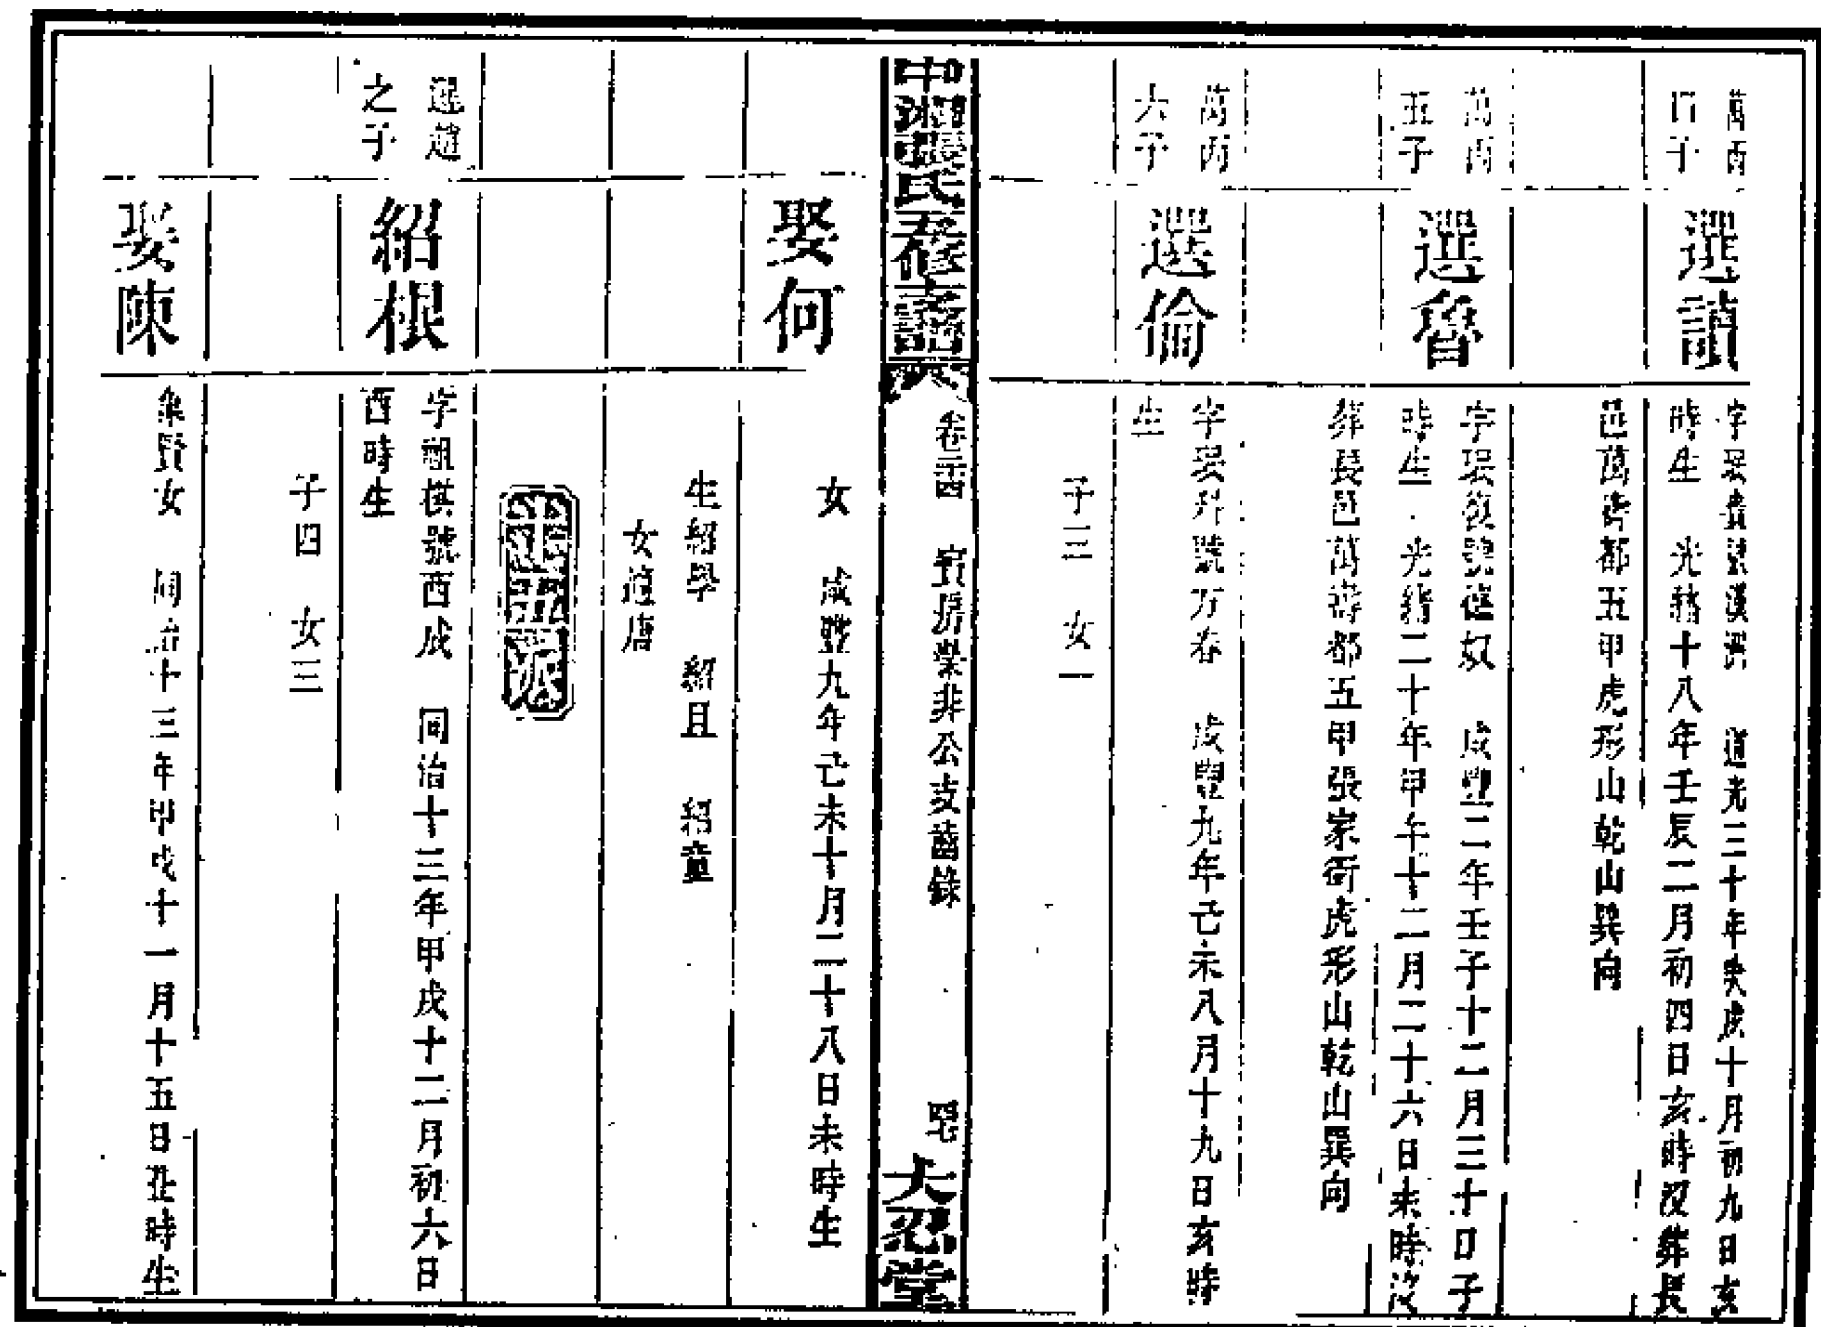 萬丙
子
選讀
時生 光緒十八年壬辰二月初四日亥時沒葬長
邑萬壽都五甲虎形山乾山巽向
萬丙
五子
選魯
咸豐二年壬子十二月三十日子
時生 光緒二十年甲午十二月二十六日未時沒
葬長邑萬壽都五甲張家衝虎形山乾山巽向
萬丙
六子
選倫
咸豐九年己未八月十九日亥時
生
子三 女一
中湘張氏五修支譜
卷二十四 賓房榮非公支齒錄
大忍堂
娶何
女 咸豐九年己未十月二十八日未時生
生紹學 紹且 紹童
女適唐
選趙
之子
紹根
字祖棋號西成 同治十三年甲戌十二月初六日
酉時生
子四 女三
娶陳
集賢女 同治十三年甲戌十一月十五日丑時生